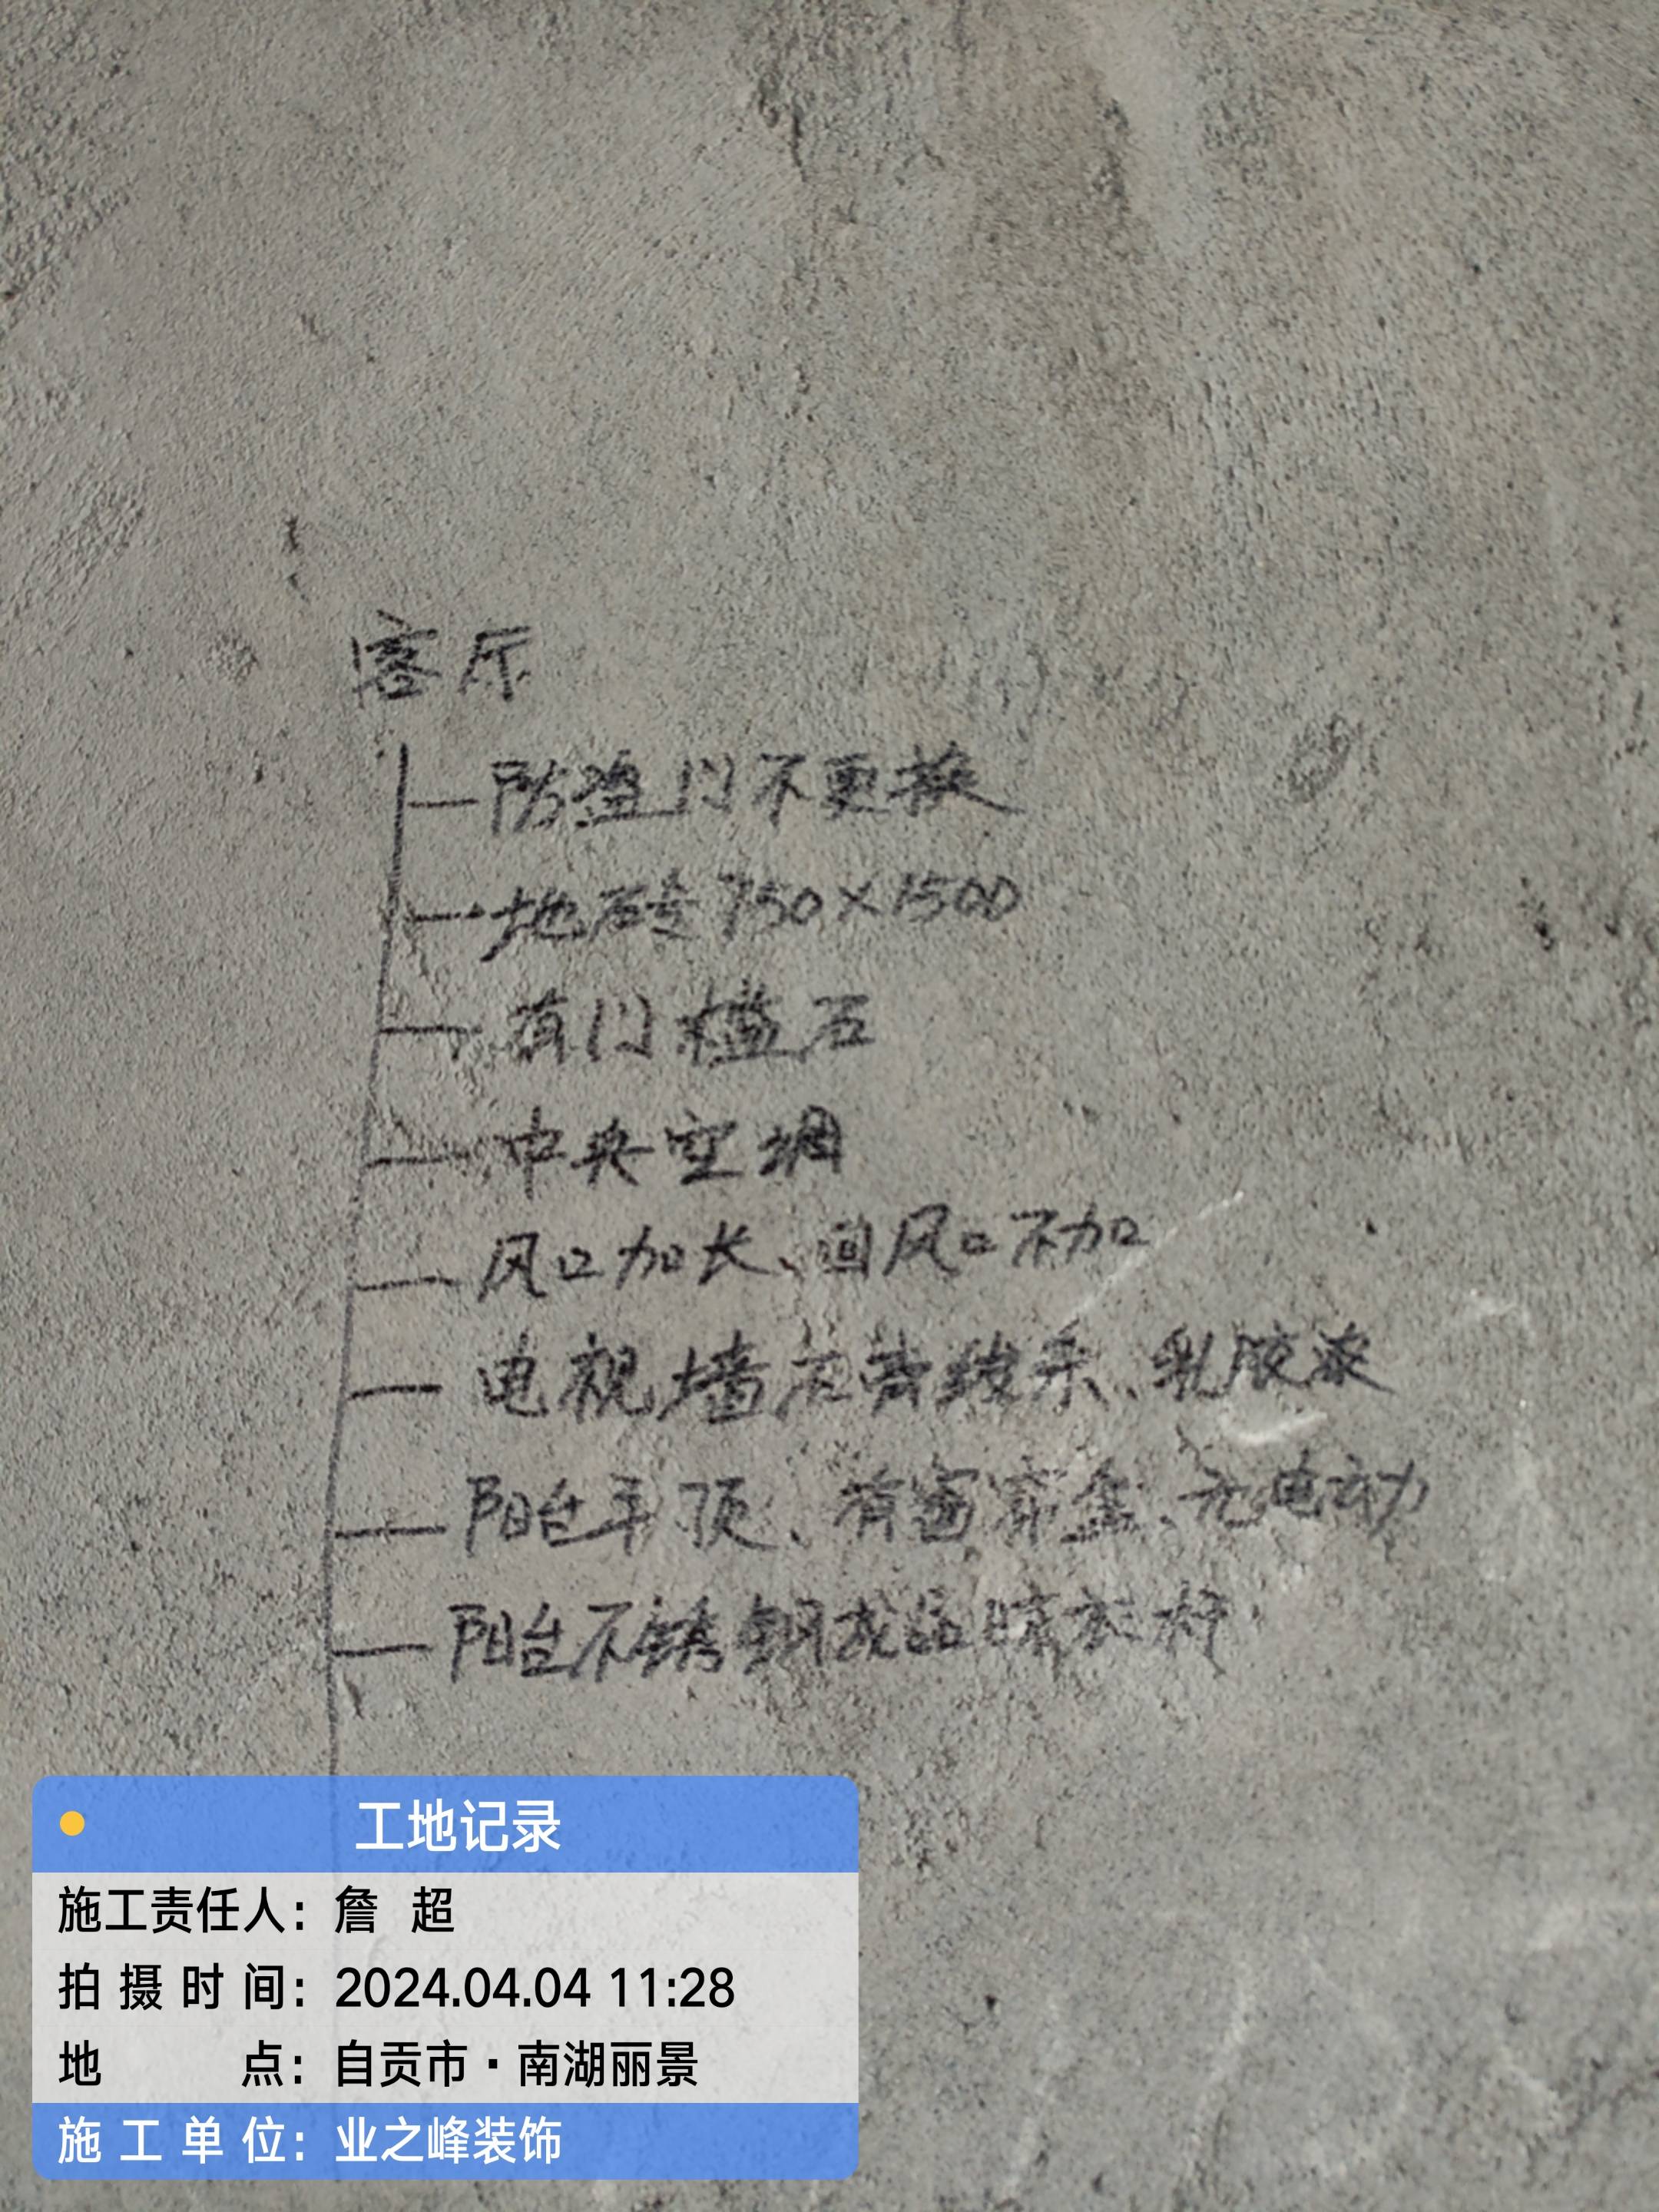 客厅
防盗门不更换
地砖750×1500
有门槛石
中央空调
风口加长、回风口不加
电视墙石膏线条、乳胶漆
阳台平顶、有窗帘盒、无电动
阳台不锈钢成品晾衣杆
工地记录
施工责任人：詹 超
拍摄时间：2024.04.04 11:28
地点：自贡市·南湖丽景
施工单位：业之峰装饰